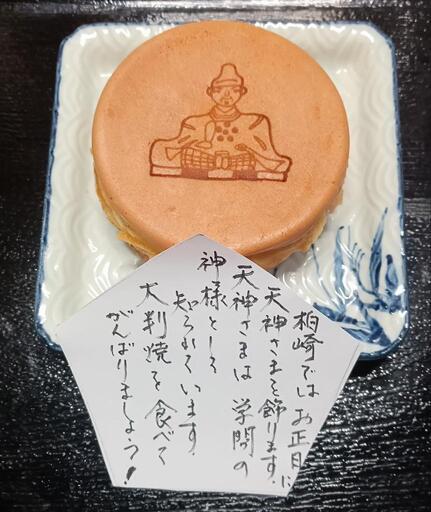 柏崎ではお正月に
天神さまを飾ります。
天神さまは学問の
神様として
知られています
大判焼を食べて
がんばりましょう!